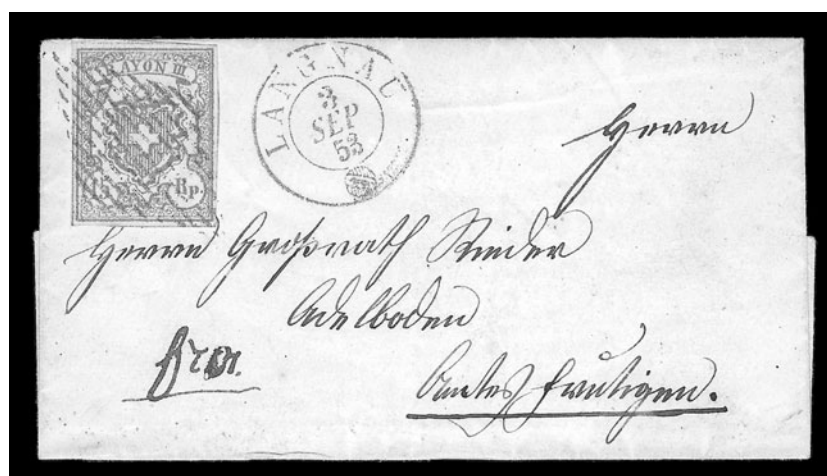 RAYON III
15 Rp.
LANGNAU
3
SEP
53
Herrn
Herrn Großrath Rieder
Adelboden
Amtes Frutigen.